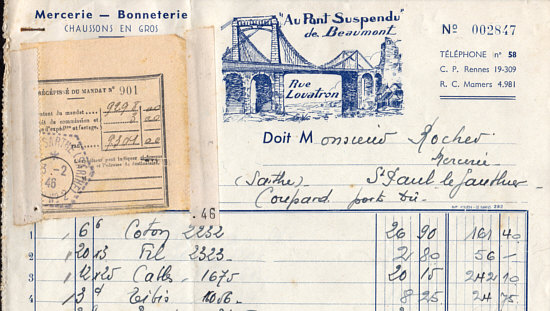 Mercerie — Bonneterie
CHAUSSONS EN GROS
"Au Pont Suspendu"
de Beaumont
Rue
Louatron
Nº 002847
TÉLÉPHONE nº 58
C. P. Rennes 19-309
R. C. Mamers 4.981
RÉCÉPISSÉ DU MANDAT Nº 901
du mandat
SARTHE
-2
46
Doit Monsieur Rocher
Mercerie
(Sarthe) St Paul le Gaultier
Coupard port Dû
. 46
1 6 6 Coton 2232 26 90 161 40
2 20/13 Fil 2323 2 80 56 —
3 12x20 Cables 1675 20 15 242 10
4 3d 1056 8 25 24 75